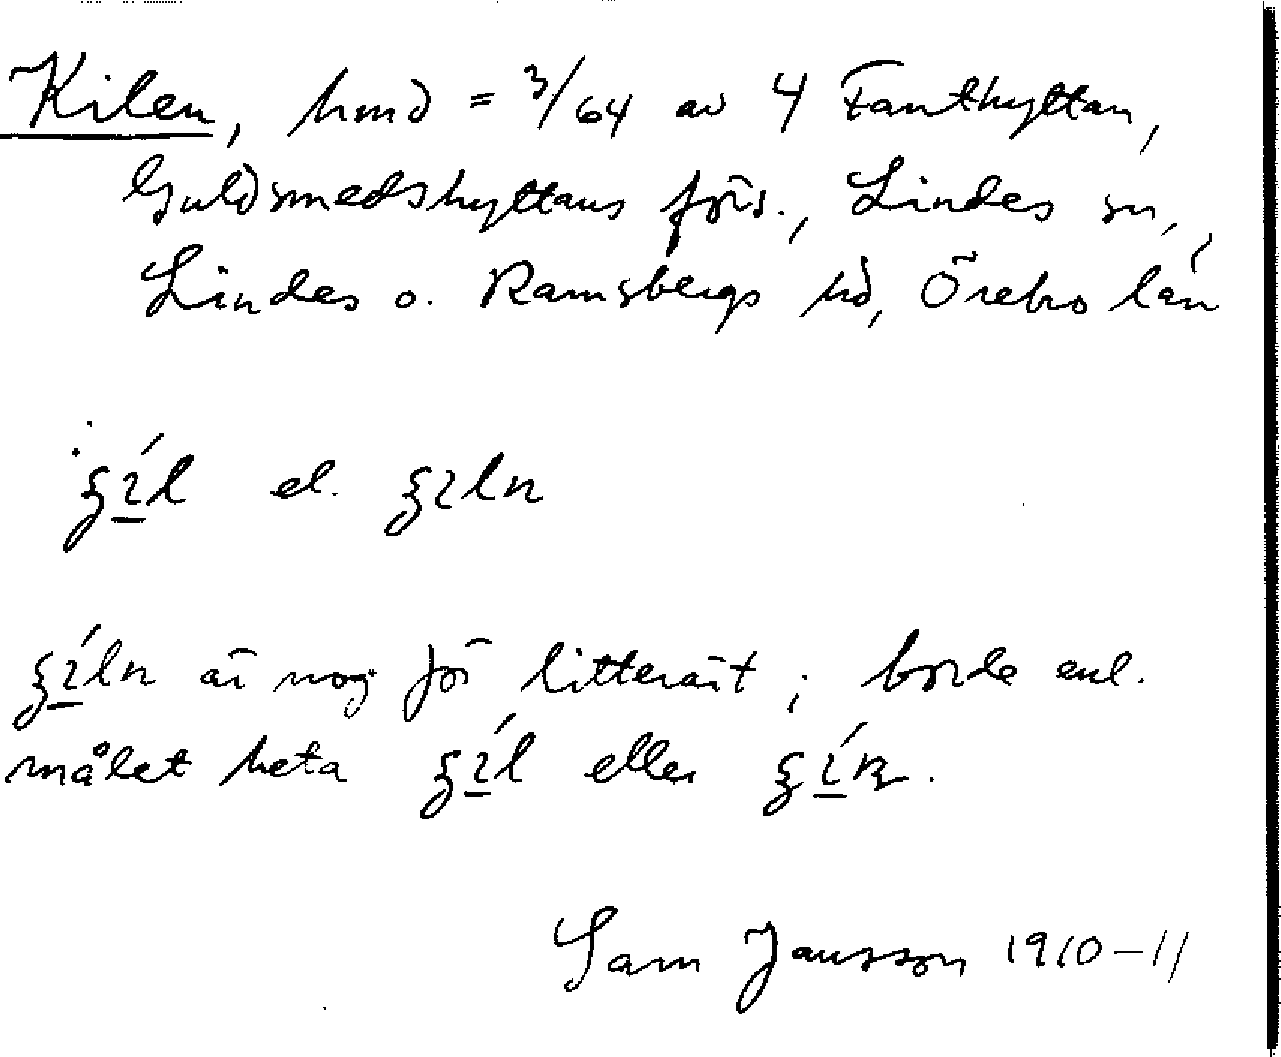 Kilen, hmd = 3/64 av 4 Fanthyttan,
Guldsmedshyttans förs., Lindes sn,
Lindes o. Ramsbergs hd, Örebro län
el.
är nog för litterärt; borde enl.
målet heta eller
Sam Jansson 1910-11